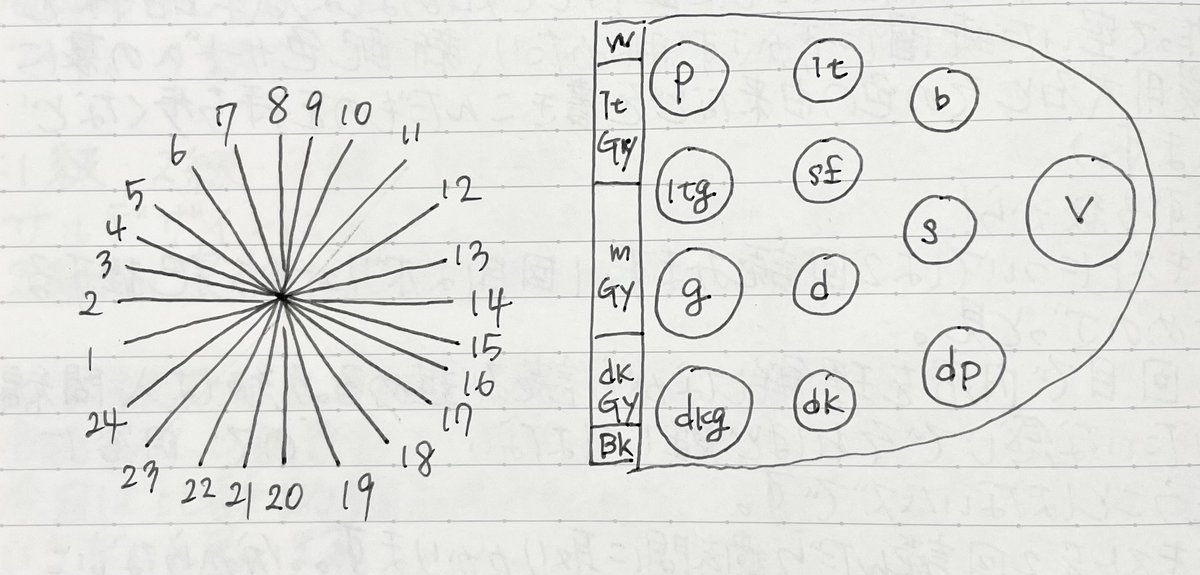 1
2
3
4
5
6
7
8
9
10
11
12
13
14
15
16
17
18
19
20
21
22
23
24
W
lt
Gy
m
GY
dk
GY
Bk
p
lt
b
ltg
sf
s
V
g
d
dp
dkg
dk